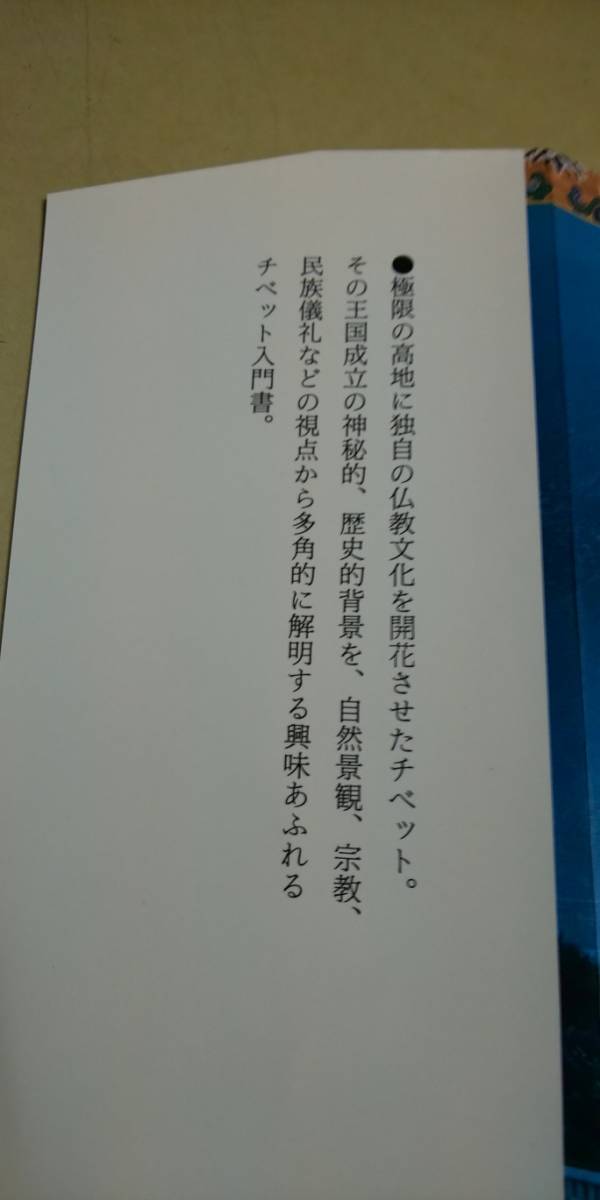 ●極限の高地に独自の仏教文化を開花させたチベット。
その王国成立の神秘的、歴史的背景を、自然景観、宗教、
民族儀礼などの視点から多角的に解明する興味あふれる
チベット入門書。